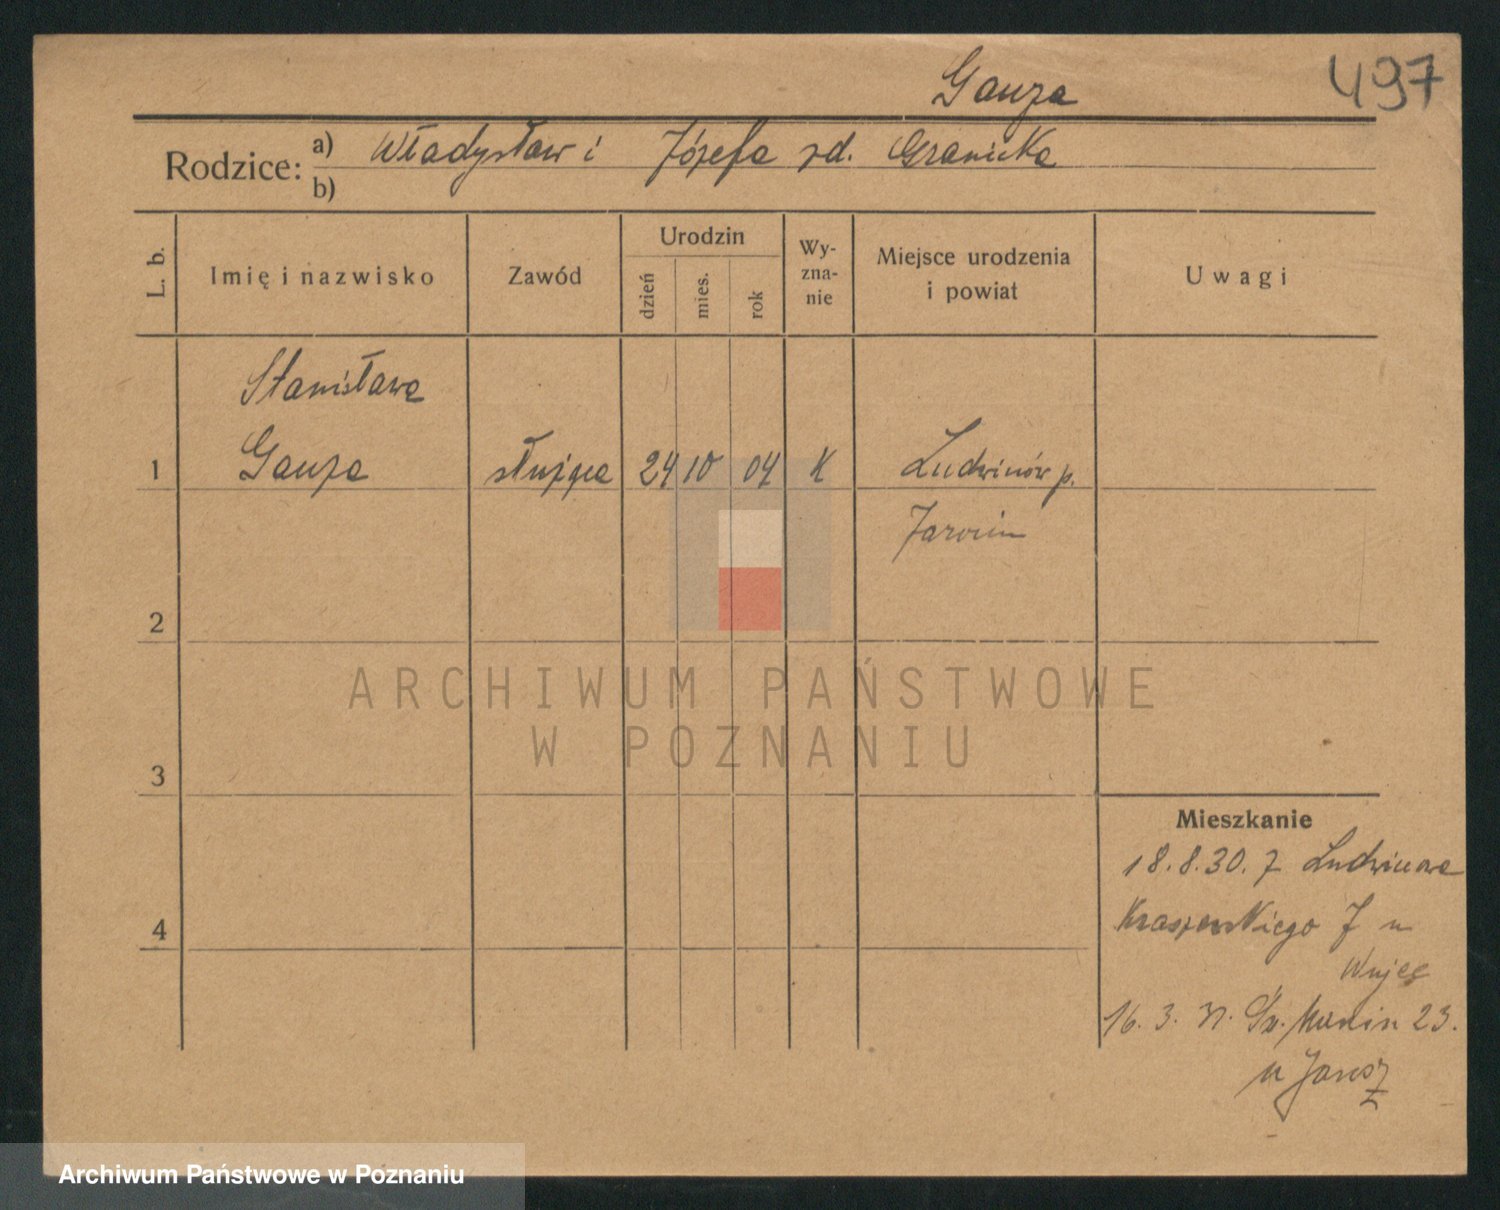 Gauza
497
Rodzice: a) Władysław i Józefa zd. Granicka
b)
L. b.
Imię i nazwisko
Zawód
Urodzin
dzień
mies.
rok
Wy-
zna-
nie
Miejsce urodzenia
i powiat
Uwagi
Stanisława
1 Gauza służąca 24 10 04 K Ludwinów p.
Jarocin
2
ARCHIWUM PAŃSTWOWE
W POZNANIU
3
Mieszkanie
18.8.30. z Ludwinowa
4 Kraszewskiego 7 u
16. 3. 31. Św. Marcin 23.
u
Archiwum Państwowe w Poznaniu